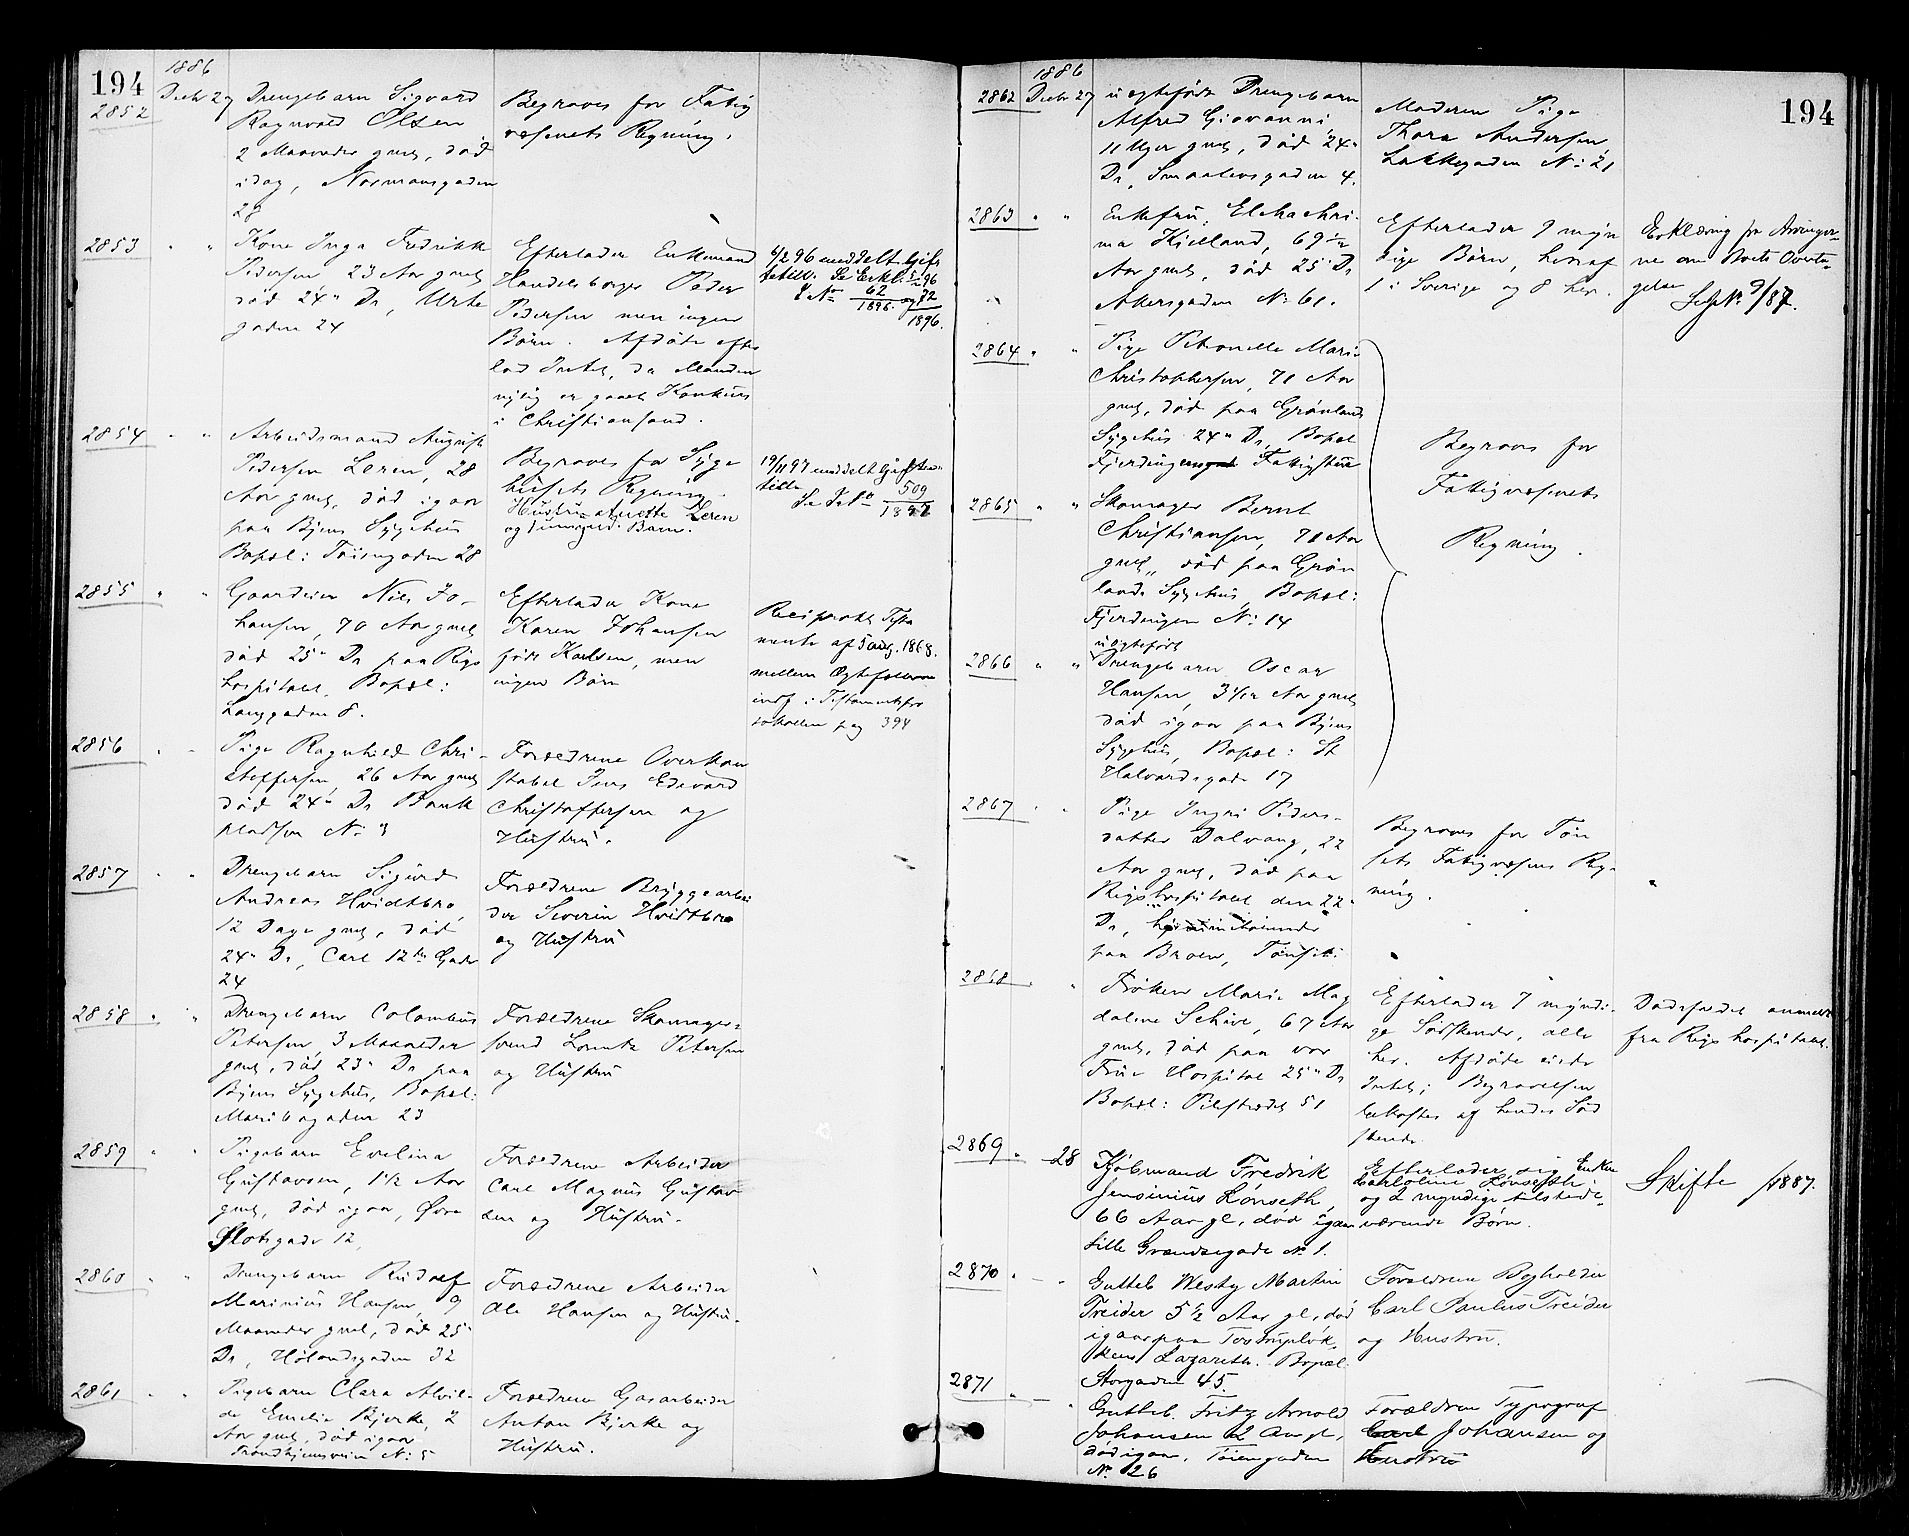 194
1886
2852 Decbr 27 Drengebarn Sigvard
Ragnvald Olsen
2 Maaneder gmel, død
idag, Normansgaden
28
Begraves for Fattig
væsenets Regning.
2853 " " Kone Inga Fredrikke
Pedersen 23 Aar gmel
død 24de Ds, Urte
gaden 24
Efterlader Enkemand
Handelsborger Peder
Pedersen men ingen
Børn. Afdøde efter
lod Intet, da Manden
nylig er gaaet Konkurs
i Christiansand.
6/2 96 meddelt Gifte
Se Erkl.
62
1896
72
1896.
2854 " " Arbeidsmand August
Pedersen Leren, 28
Aar gmel, død igaar
paa Byens Sygehus
Bopæl: Tøiengaden 28
Begraves for Syge
husets Regning.
Hustru Anette Leren
og 1 umynd. Barn.
19/11 97 meddelt
Se
509
1897
2855 " " Gaardeier Niels Jo-
hansen, 70 Aar gmel
død 25de Ds paa Rigs
hospitalet, Bopæl:
Langgaden 8.
Efterlader Kone
Karen Johansen
født Karlsen, men
ingen Børn
Reciprokt Testa
mente af 5 aug. 1868.
mellem Ægtefællerne
indf i Testamentspro
tokollen pag 394
2856 " " Pige Ragnhild Chri-
stoffersen, 26 Aar gmel
død 24de Ds Bank
pladsen No 3
Forældrene Overkon
stabel Jens Edevard
Christoffersen og
Hustru.
2857 " " Drengebarn Sigurd
Andreas Hvidtbro,
12 Dage gmel, død
24de Ds, Carl 12tes Gade
24
Forældrene Bryggearbei
der Severin Hvidtbro
og Hustru
2858 " " Drengebarn Columbus
Petersen, 3 Maaneder
gmel, død 23de Ds paa
Byens Sygehus, Bopæl:
Maribogaden 23
Forældrene Skomager-
svend Lorentz Petersen
og Hustru
2859 " " Pigebarn Evelina
Gustavsen, 1 1/2 Aar
gmel, død igaar, Øvre
Slotsgade 12,
Forældrene Arbeider
Carl Magnus Gustav
sen og Hustru.
2860 " " Drengebarn Rudolf
Marinius Hansen, 9
Maaneder gmel, død 25de
Ds, Hølandsgaden 32
Forældrene Arbeider
Ole Hansen og Hustru.
2861 " " Pigebarn Clara Alvil-
de Emelie Bjerke, 2
Aar gmel, død igaar
Trondhjemsveien No 5
Forældrene Gasarbeider
Anton Bjerke og
Hustru.
194
1886
2862 Decbr 27 uægtefødt Drengebarn
Alfred Giovanni,
11 Uger gmel, død 24de
Ds, Smaalensgaden 4.
Moderen Pige
Thora Andersen,
Lakkegaden No 21
2863 " " Enkefru Elchachri-
ma Kielland, 69
Aar gmel, død 25de Ds
Akersgaden No 61.
Efterlader 9 myn
dige Børn, heraf
1 i Sverige og 8 her.
Erklæring fra Arvinger-
ne om Boets Overta-
gelse
9/87.
2864 " " Pige Petronelle Marie
Christophersen, 71 Aar
gmel, død paa Grønlands
Sygehus 24de Ds, Bopæl
Fjerdingens Fattigstue
Begraves for
Fattigvæsenets
Regning.
2865 " " Skomager Bernt
Christiansen, 70 Aar
gmel, død paa Grøn
lands Sygehus, Bopæl:
Fjerdingen No 14
2866 " " uægtefødt
Drengebarn Oscar
Hansen, 3 Aar gmel
død igaar paa Byens
Sygehus, Bopæl: St
Halvardsgade 17
2867 " " Pige Ingri Peders-
datter Dalvang, 22
Aar gmel, død paa
Rigshospitalet den 22de
Ds, hjemmehørende
paa Broen, Tønset.
Begraves for Tøn
sets Fattigvæsens Reg-
ning.
2868 " " Frøken Marie Mag
dalene Schive, 67 Aar
gmel, død paa vor
Frue Hospital 25de Ds
Bopæl: Pilestrædet 51
Efterlader 7 myndi-
ge Sødskende, alle
her. Afdøde eiede
Intet; Begravelsen
bekostes af hendes Sød
skende.
Dødsfaldet anmeldt
fra Rigshospitalet.
2869 " 28 Kjøbmand Fredrik
Jensinius Lönseth,
66 Aar gl, død igaar
Lille Grændsegade No 1.
Efterlader sig Enken
Karloline Lönseth
og 2 myndige tilstede-
værende Børn.
Skifte /1887.
2870 " " Gutteb. Westy Martin
Treider 5 1/2 Aar gl, død
igaar paa Tostrupløk-
kens Lazareth. Bopæl.
Storgaden 45.
Forældrene Bogholder
Carl Paulus Treider
og Hustru.
2871 " " Gutteb. Fritz Arnold
Johansen 2 Aar gl,
død igaar. Töiengaden
No 26
Forældrene Typograf
Carl Johansen og
Hustru